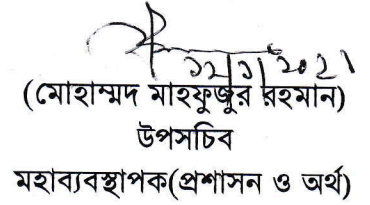 ১২/১/২০২১
(মোহাম্মদ মাহফুজুর রহমান)
উপসচিব
মহাব্যবস্থাপক(প্রশাসন ও অর্থ)